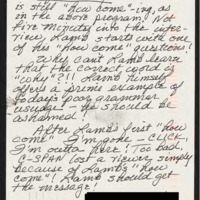 is still "how come"-ing, as
in the above program. Not
five minutes into the inter-
view Lamb starts with one
of his "how come" questions!
Why can't Lamb learn
that the correct word is
"why"?!! Lamb himself
offers a prime example of
today's poor grammar
usage! He should be
ashamed!
After Lamb's first "how
come" I'm gone – CLICK,
I'm outta here! Too bad,
C-SPAN lost a viewer simply
because of Lamb's "how
come"! Lamb should get
the message!